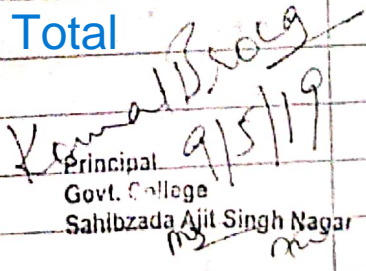 Total
9/5/19
Principal
Govt. College
Sahibzada Ajit Singh Nagar